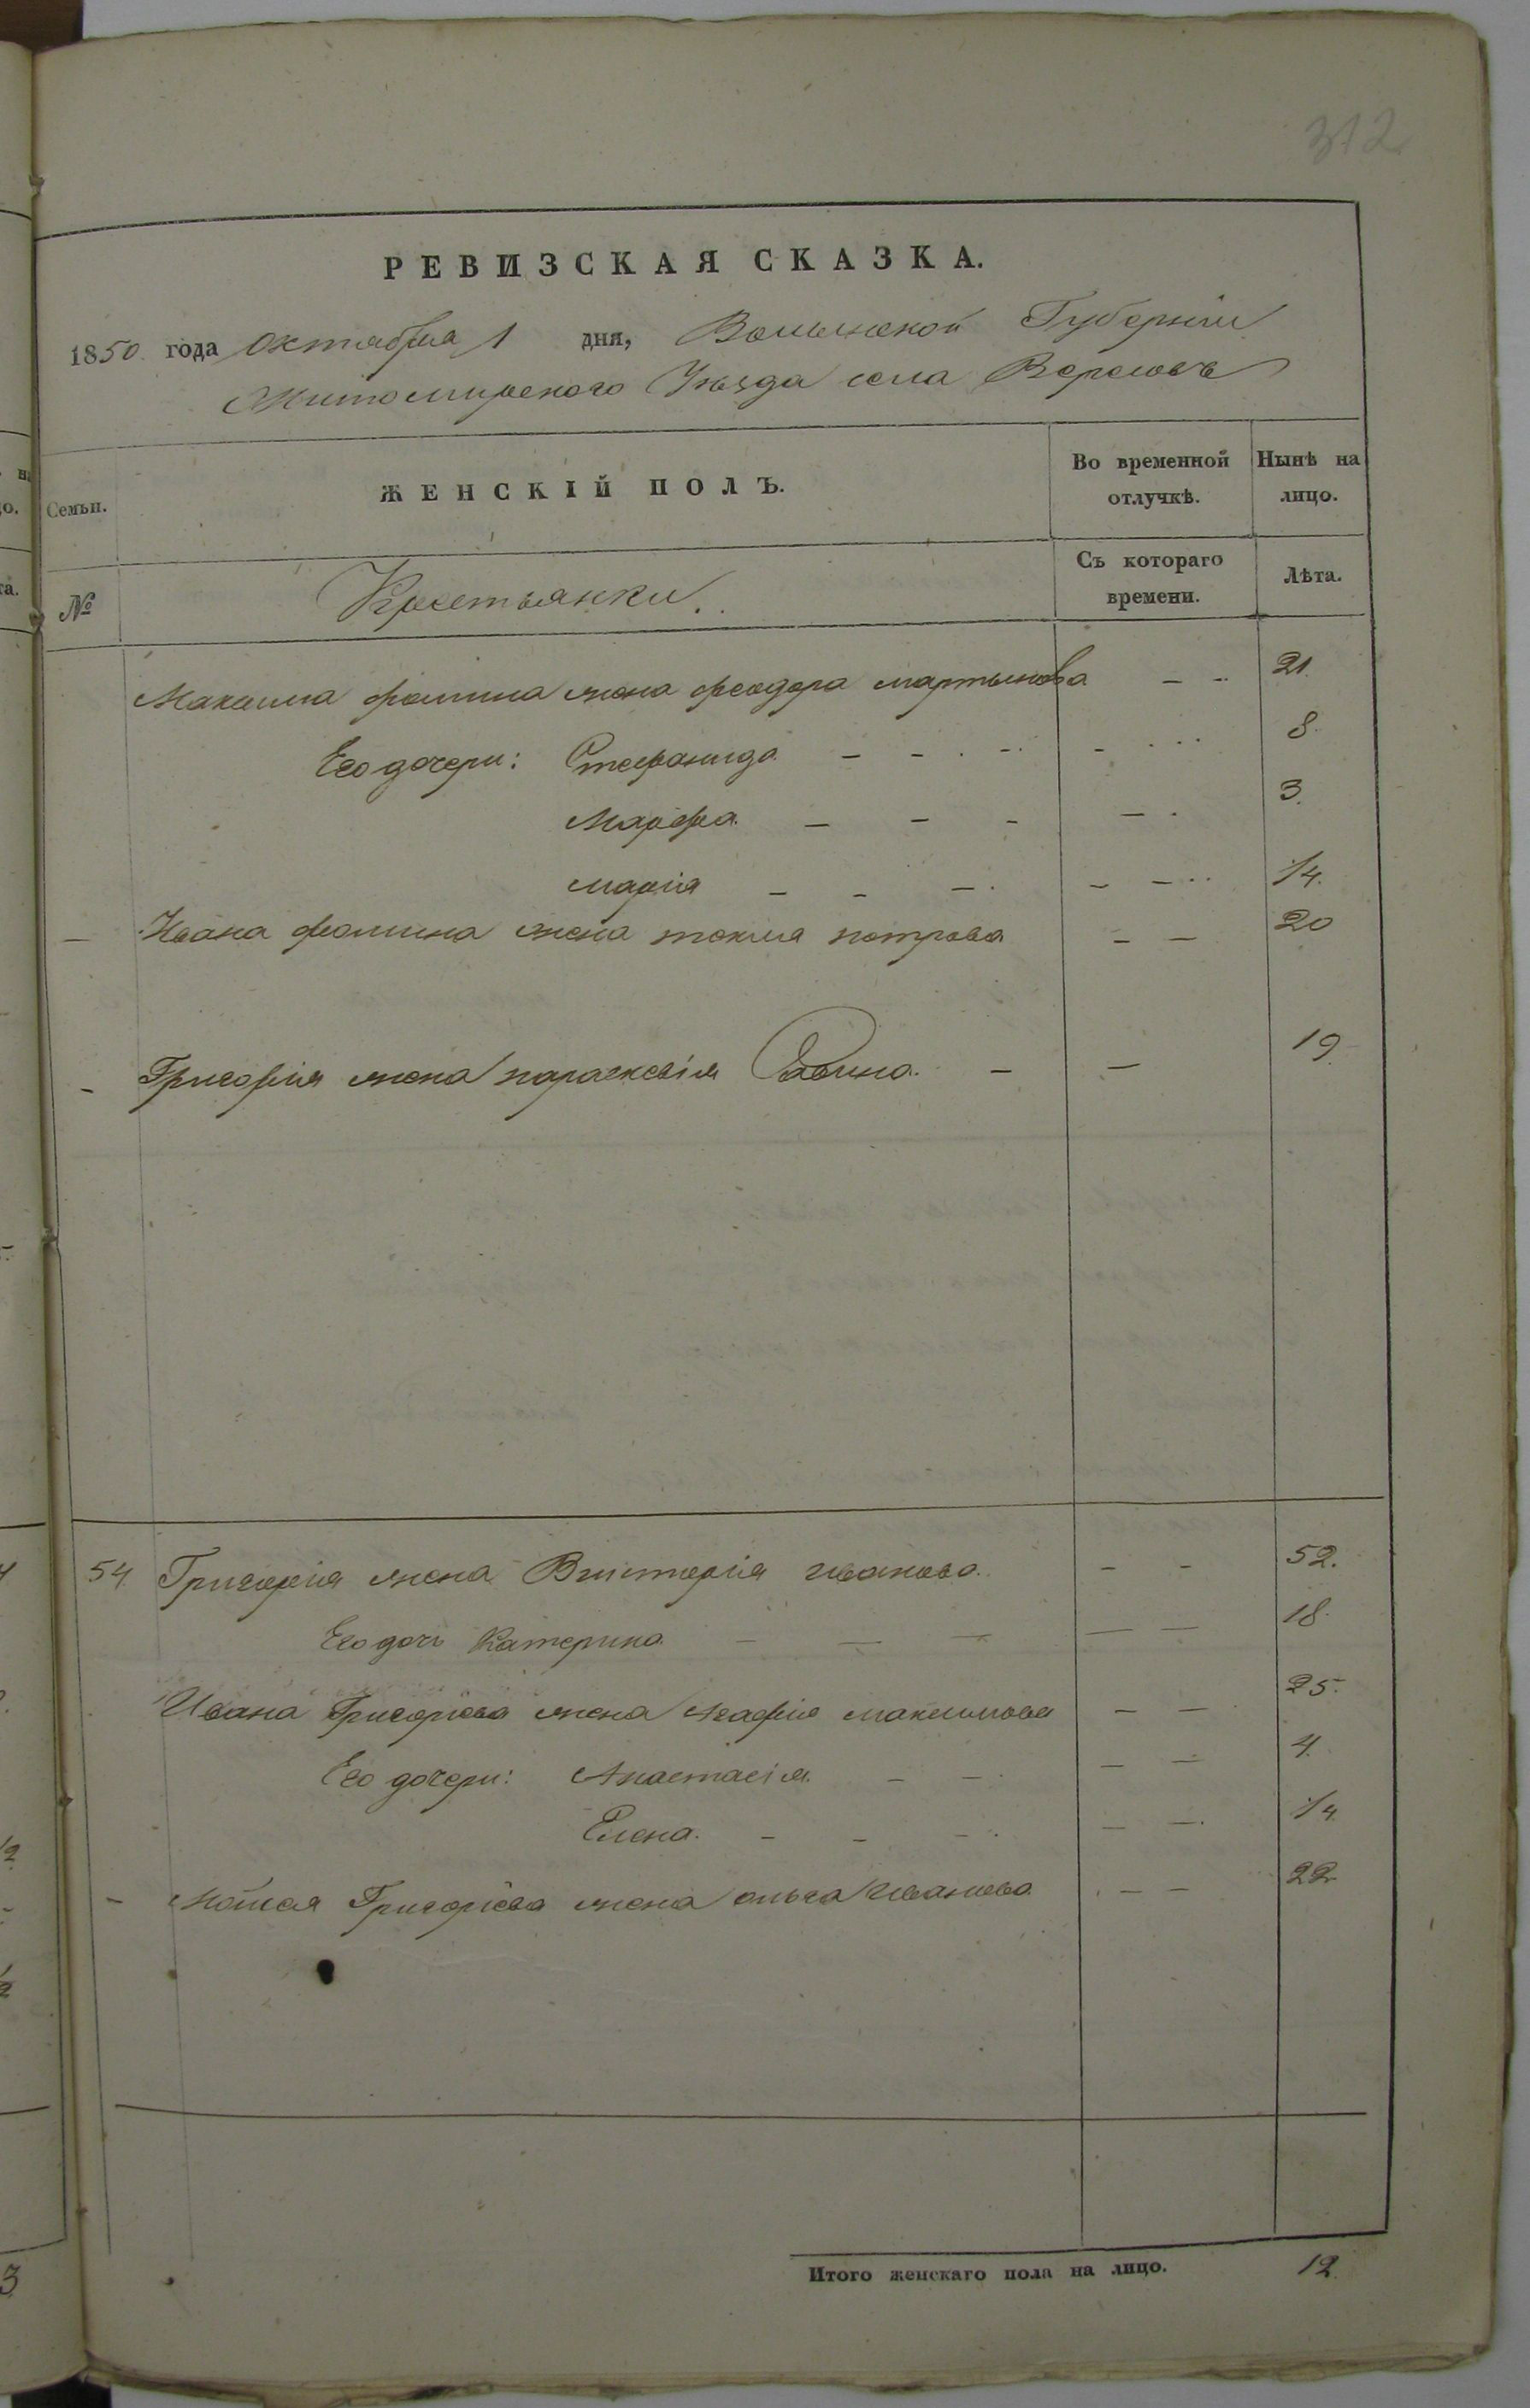 312
РЕВИЗСКАЯ СКАЗКА.
1850 года октября 1 дня, Волынской Губернiи
Житомирского Уѣзда села Вересовъ
Семьи. ЖЕНСКІЙ ПОЛЪ. Во временной отлучкѣ. Нынѣ на лицо.
№ Крестьянки. Съ котораго времени. Лѣта.
Максима фомина жена феодора мартынова - - 21.
Его дочери: Стефанида - - - - 8.
Марфа - - - - 3.
марiя - - - - - 1/4.
- Ивана фомина жена текля петрова - - 20
- Григорiя жена параскевiя - - 19
54. Григорiя жена Викторiя иванова - - 52.
Его дочь Катерина - - - - - 18.
Ивана Григорiева жена Агафiя максимова - - 25.
Его дочери: Анастасiя - - - - 4.
Елена - - - - - 1/4
- Григорiева жена ольга Иванова - - 22
Итого женскаго пола на лицо. 12.